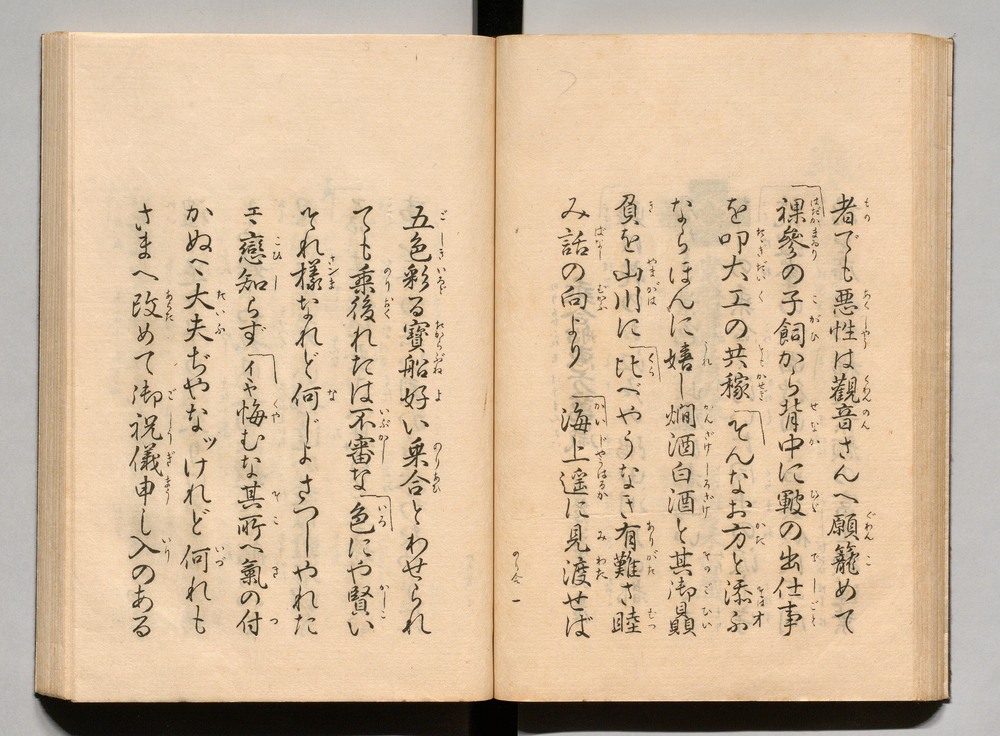 者でも悪性は觀音さんへ願籠めて
裸參の子飼から背中に皸の出仕事
を叩大工の共稼そんなお方と添ふ
ならほんに嬉し燗酒白酒と其御贔
負を山川に比べやうなき有難さ睦
み話の向より海上遥に見渡せば
のり合 一
五色彩る寶船好い乗合とわせられ
ても乗後れたは不審な色にや賢い
それ様なれど何じよさつしやれた
ヱ戀知らずイヤ悔むな其所へ氣の付
かぬヘ大夫ぢやなッけれど何れも
さまへ改めて御祝儀申し入のある